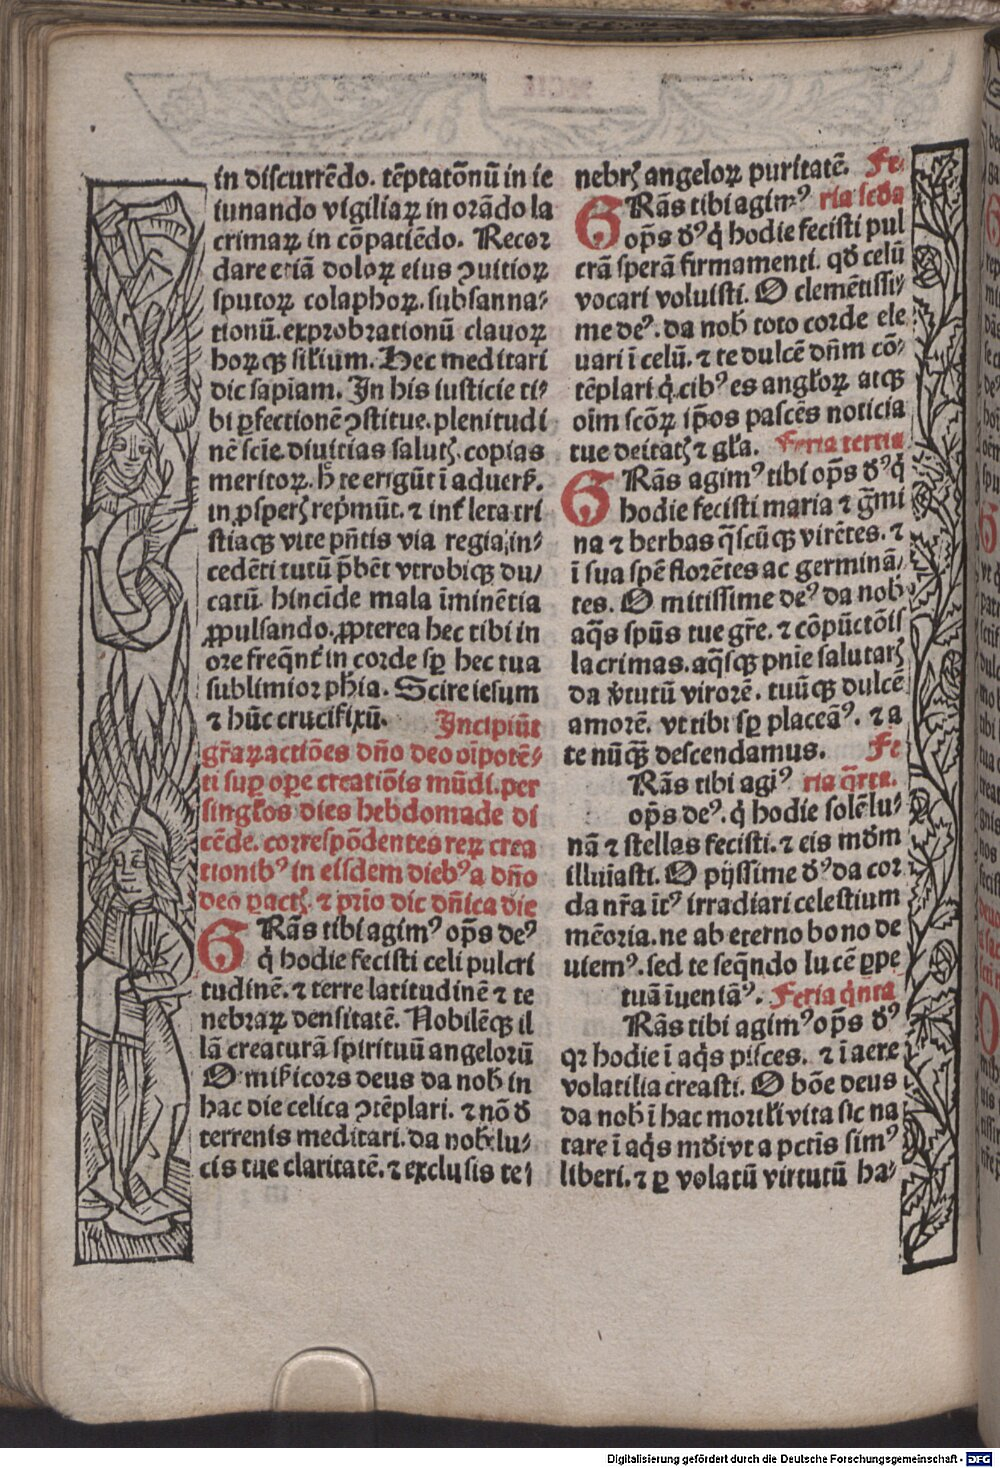 in discurrēdo. tēptatōnū in ie
iunando vigiliaꝝ in orādo la
crimaꝝ in cōpatiēdo. Recor
dare etiā doloꝝ eius ꝯuitioꝝ
sputoꝝ colaphoꝝ. subsanna⸗
tionū. exprobrationū clauoꝝ
hoꝝqꝫ silium. Hec meditari
dic sapiam. In his iusticie ti⸗
bi ꝑfectionē ꝯstitue. plenitudi
nē scie. diuitias salutꝭ. copias
meritoꝝ. h̄ te erigūt ī aduerſ.
in ꝓsperꝭ rep̄mūt. ⁊ int̄ leta tri
stiaqꝫ vite pn̄tis via regia, in⸗
cedēti tutū p̄bēt vtrobiqꝫ du⸗
catū. hincīde mala īminētia
ꝓpulsando. ꝓpterea hec tibi in
ore freq̄nt̄ in corde sꝑ hec tua
sublimior ph̄ia. Scire iesum
⁊ hūc crucifixū. Incipiūt
gr̄aꝝ actiōes dn̄o deo oīpotē⸗
ti suꝑ oꝑe creatiōis mūdi. per
singl̄os dies hebdomade di
cēde. correspōdentes reꝝ crea
tionibꝰ in eisdem diebꝰ a dn̄o
deo ꝑactꝭ. ⁊ pr̄io dic dn̄ica die
GRās tibi agimꝰ op̄s deꝰ
q̇ hodie fecisti celi pulcri
tudinē. ⁊ terre latitudinē ⁊ te
nebraꝝ densitatē. Nobilēqꝫ il
lā creaturā spirituū angelorū
O mis̄icors deus da nob̄ in
hac die celica ꝯtēplari. ⁊ nō ð
terrenis meditari. da nob̄ lu⸗
cis tue claritatē. ⁊ exclusis te⸗
nebrꝭ angeloꝝ puritatē. Fe⸗
GRās tibi agimꝰ ria scða
op̄s ðꝰ q̇ hodie fecisti pul
crā sperā firmamenti. qð celū
vocari voluisti. O clemētissi⸗
me deꝰ. da nob̄ toto corde ele
uari ī celū. ⁊ te dulcē dn̄m cō⸗
tēplari q̇ cibꝰ es angl̄oꝝ atqꝫ
oīm scōꝝ ip̄os pascēs noticia
tue deitatꝭ ⁊ gl̄a. Feria tertia
GRās agimꝰ tibi op̄s ðꝰ q̇
hodie fecisti maria ⁊ gm̄i
na ⁊ herbas q̄scūqꝫ virētes. ⁊
ī sua spē florētes ac germinā⸗
tes. O mitissime deꝰ da nob̄
aq̄s spūs tue gr̄e. ⁊ cōpūctōis
lacrimas. aq̄sqꝫ pnīe salutarꝭ
da v̇tutū virorē. tuūqꝫ dulcē
amorē. vt tibi sꝑ placeāꝰ. ⁊ a
te nūqꝫ̄ descendamus. Fe
Rās tibi agiꝰ ria q̄rta.
op̄s deꝰ. q̇ hodie solē lu⸗
nā ⁊ stellas fecisti. ⁊ eis mðm
illuīasti. O pijssime ðꝰ da cor
da nr̄a it̄ꝰ irradiari celestium
mēoria. ne ab eterno bono de
uiemꝰ. sed te seq̄ndo lucē ꝑpe
tuā īueniāꝰ. Feria q̇nta
Rās tibi agimꝰ op̄s ðꝰ
qꝛ hodie ī aq̄s pisces. ⁊ ī aere
volatilia creasti. O bōe deus
da nob̄ ī hac mortl̄i vita sic na
tare ī aq̄s mūdi vt a pctīs simꝰ
liberi. ⁊ ꝑ volatū virtutū ha⸗
Digitalisierung gefördert durch die Deutsche Forschungsgemeinschaft - DFG